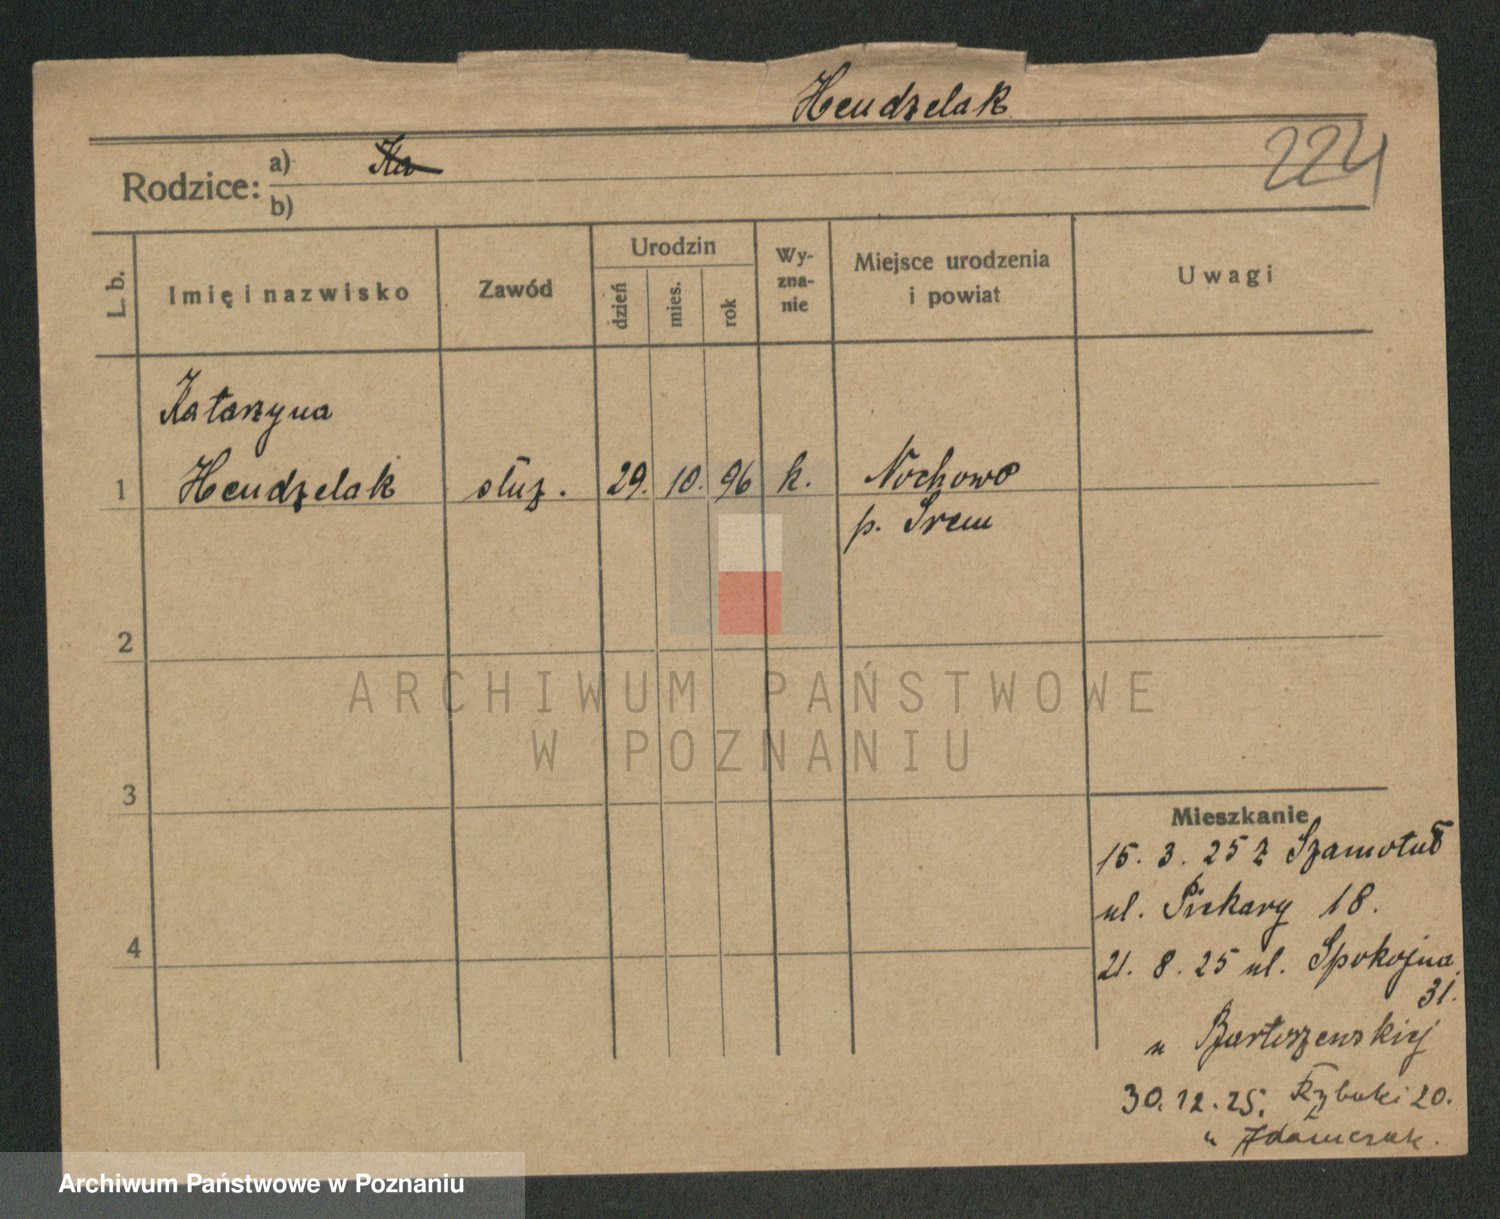 Hendzelak
224
Rodzice: a) Ka
b)
L. b.
Imię i nazwisko
Zawód
Urodzin
dzień
mies.
rok
Wy-
zna-
nie
Miejsce urodzenia
i powiat
Uwagi
Katarzyna
1 Hendzelak służ. 29. 10. 96 k. Nochowo
p. Śrem
2
3
4
Mieszkanie
15. 3. 25 z Szamotuł
ul. Piekary 18.
21. 8. 25 ul. Spokojna
31.
u Bartoszewskiej
30. 12. 25. Rybaki 20.
u Adamczak.
ARCHIWUM PAŃSTWOWE
W POZNANIU
Archiwum Państwowe w Poznaniu